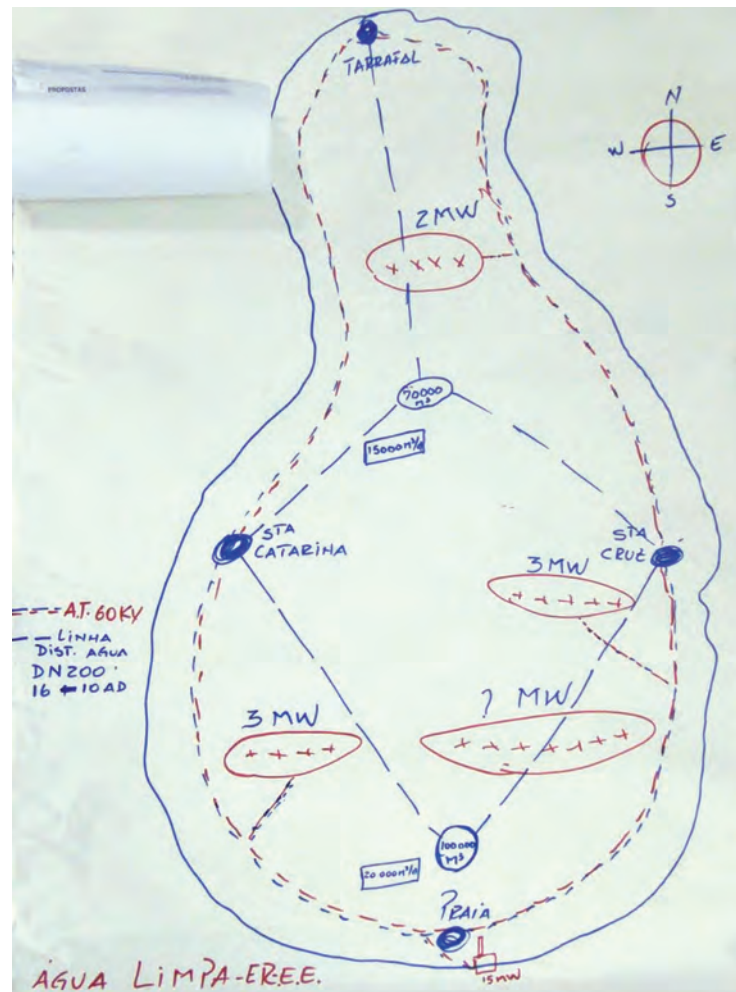 PROPOSTAS
TARRAFAL
N
W E
S
2MW
70000
M³
15000 m³/d
STA
CATARINA
STA
CRUZ
3MW
A.T. 60KV
LINHA
DIST. AGUA
DN200
16 10AD
3MW
? MW
100000
M³
20000 m³/d
PRAIA
15MW
ÁGUA LIMPA-ER.E.E.